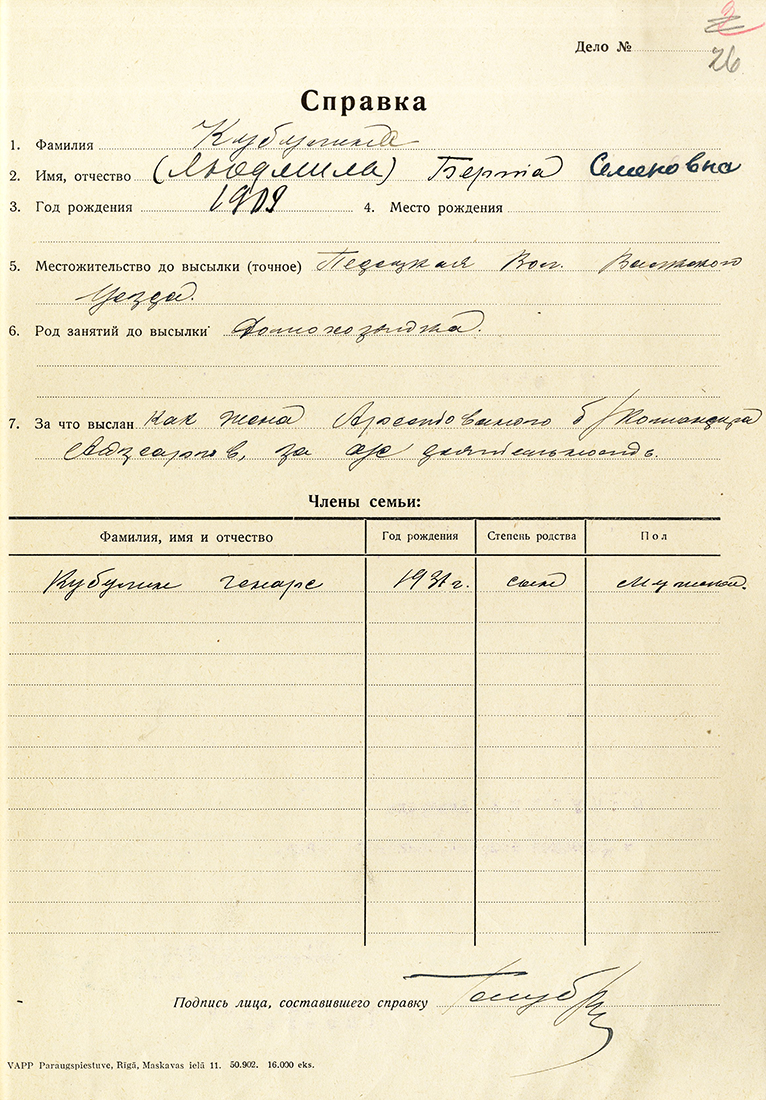 2
26
Дело №
Справка
1. Фамилия Кубулиня
2. Имя, отчество (Людмила) Берта Семеновна
3. Год рождения 1909 4. Место рождения
5. Местожительство до высылки (точное) Педецкая Вол. Валкского
Уезда.
6. Род занятий до высылки Домохозяйка.
7. За что выслан Как жена Арестованого б/Командира
Айзсаргов, за а/с деятельность.
Члены семьи:
Фамилия, имя и отчество Год рождения Степень родства Пол
Кубулин Гунарс 1931 г. сын Мужской.
Подпись лица, составившего справку
VAPP Paraugspiestuve, Rīgā, Maskavas ielā 11. 50.902. 16.000 eks.